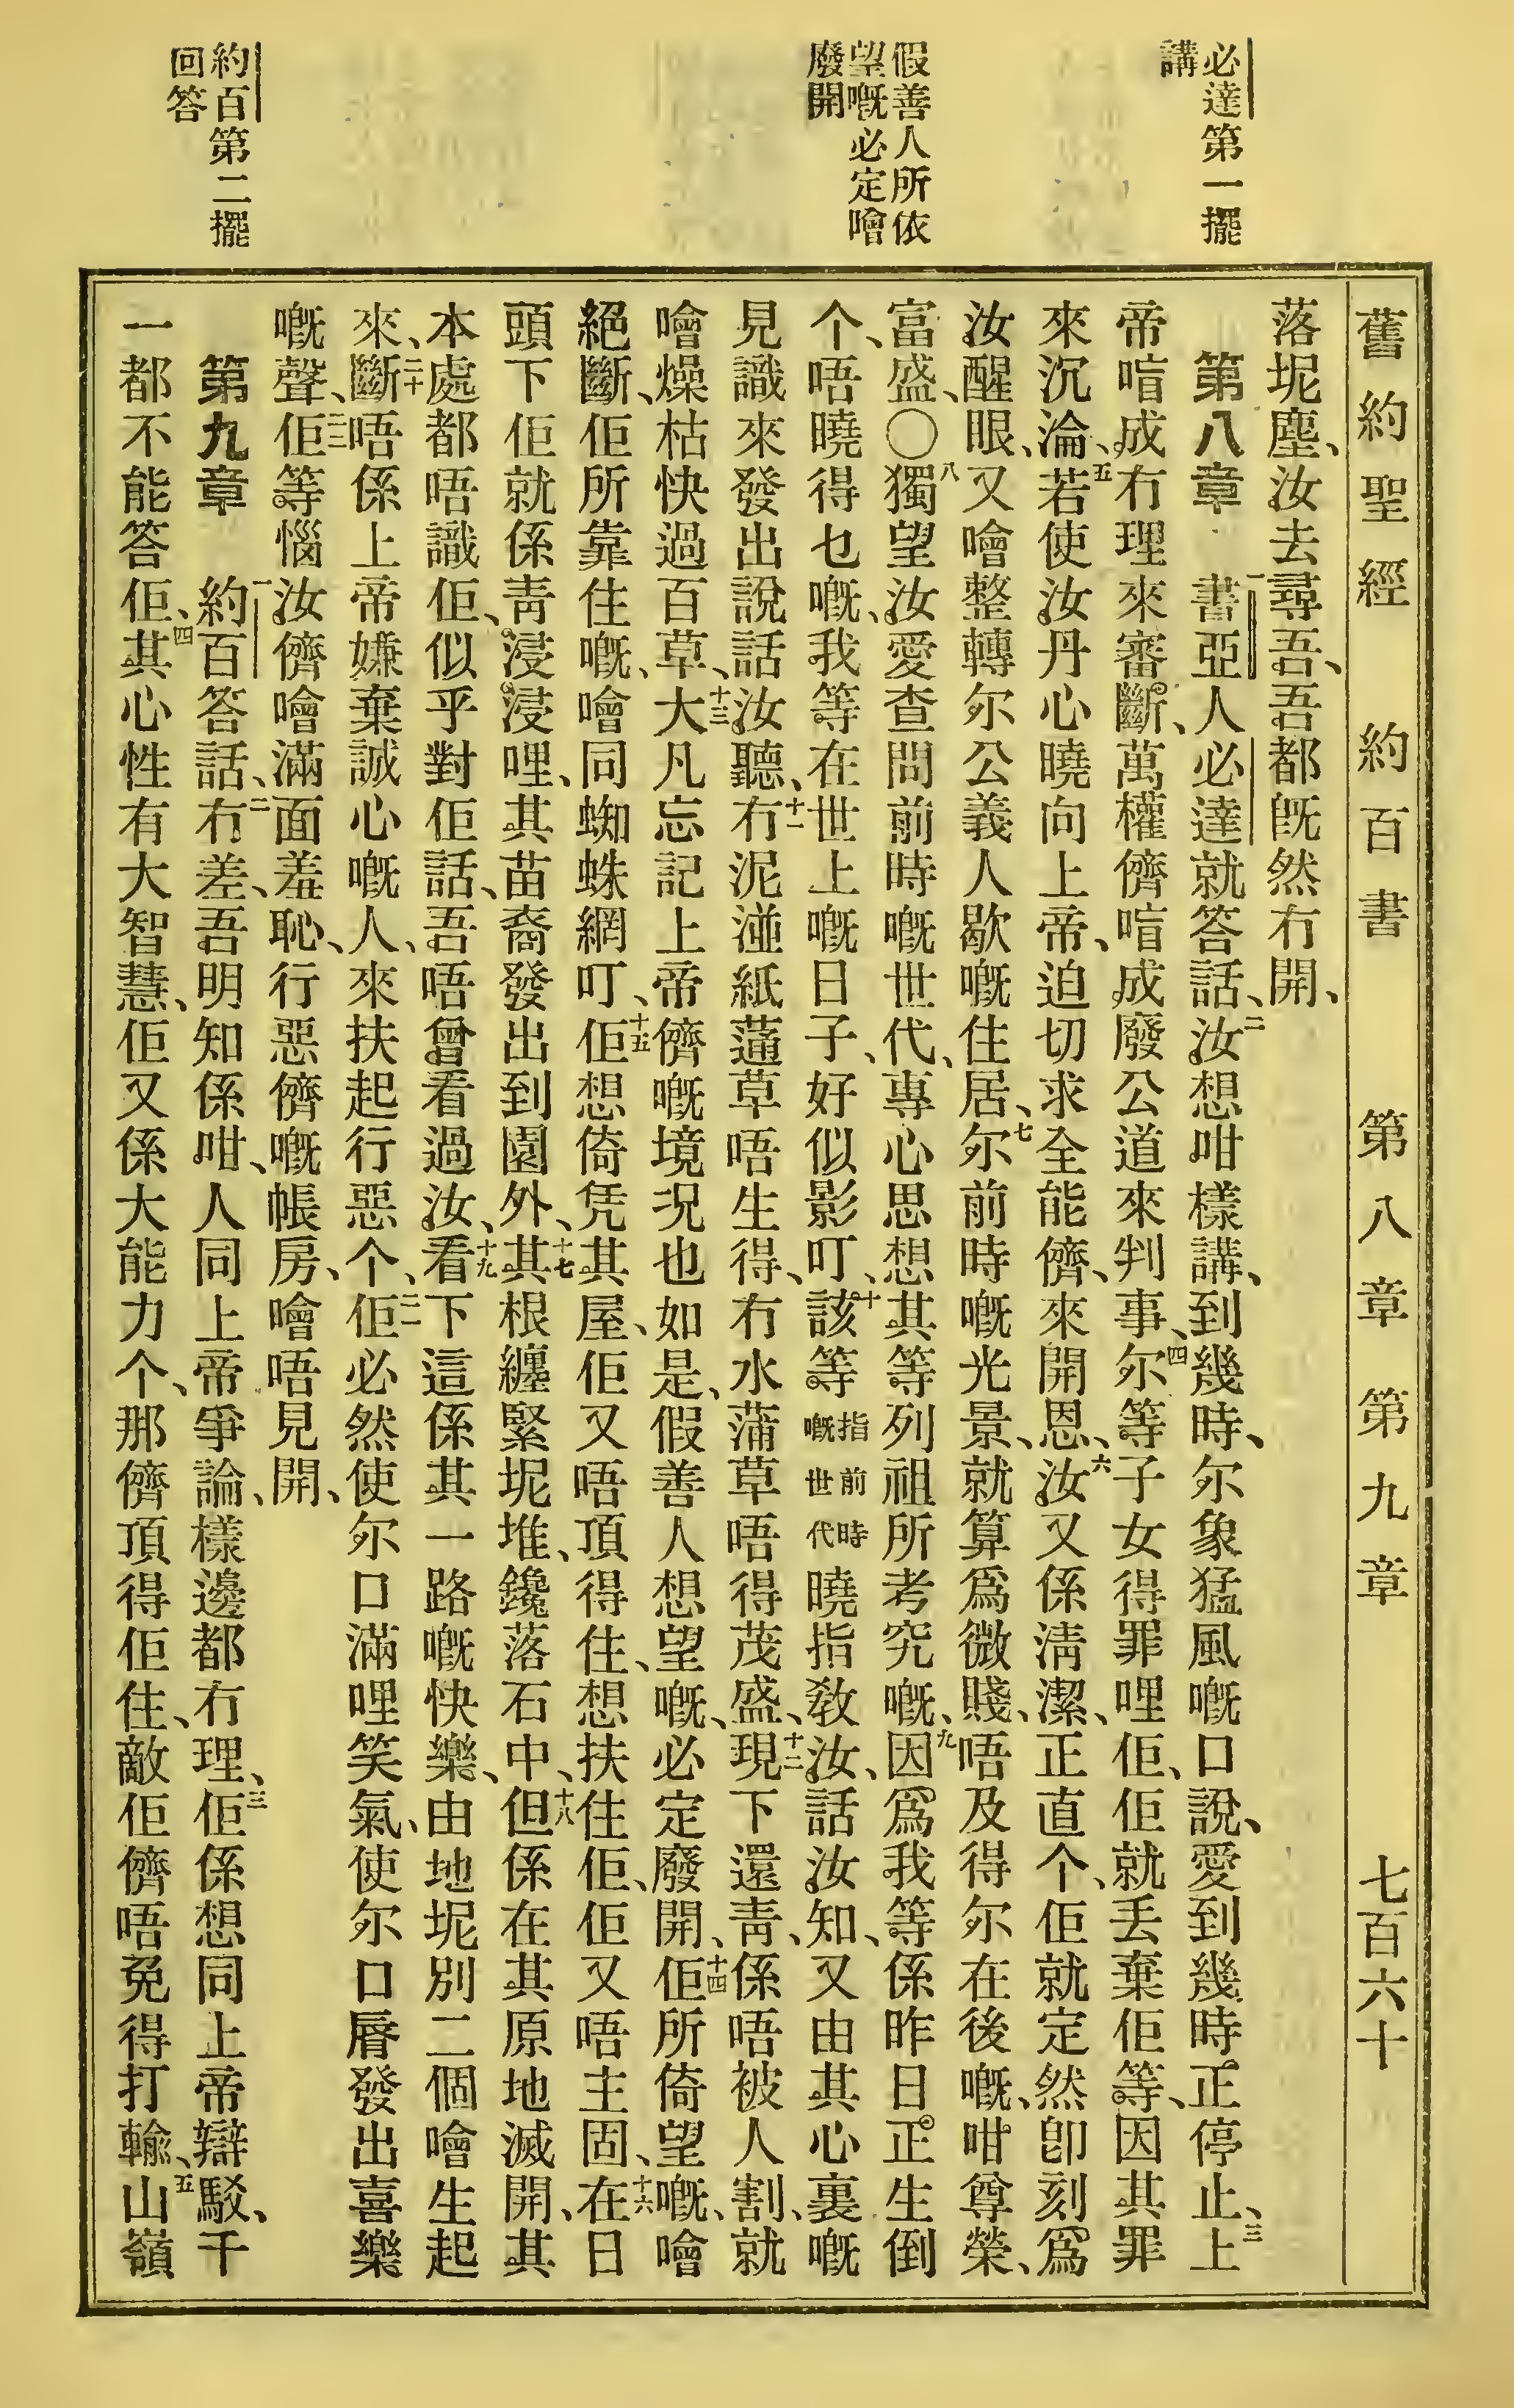 必達第一擺
講
假善人所依
望嘅必定噲
廢開
約百第二擺
回答
舊約聖經 約百書 第八章 第九章 七百六十
落坭塵、汝去尋吾、吾都既然冇開、
第八章 一書亞人必達就答話、二汝想咁樣講、到幾時、尔象猛風嘅口說、愛到幾時正停止、三上
帝喧成冇理來審斷、萬權儕喧成廢公道來判事、四尔等子女得罪哩佢、佢就丢棄佢等、因其罪
來沉淪、五若使汝丹心曉向上帝、迫切求全能儕、來開恩、六汝又係淸潔、正直个、佢就定然卽刻爲
汝醒眼、又噲整轉尔公義人歇嘅住居、七尔前時嘅光景、就算爲微賤、唔及得尔在後嘅、咁尊榮、
富盛、〇八獨望汝愛查問前時嘅世代、專心思想其等列祖所考究嘅、九因爲我等係昨日正生倒
个、唔曉得乜嘅、我等在世上嘅日子、好似影叮、十該等指前時嘅世代曉指敎汝、話汝知、又由其心裏嘅
見識來發出說話汝聽、十一冇泥湴紙薳草唔生得、冇水蒲草唔得茂盛、十二現下還靑、係唔被人割、就
噲燥枯快過百草、十三大凡忘記上帝儕嘅境况也如是、假善人想望嘅、必定廢開、十四佢所倚望嘅、噲
絕斷、佢所靠住嘅、噲同蜘蛛網叮、十五佢想倚凭其屋、佢又唔頂得住、想扶住佢、佢又唔主固、十六在日
頭下佢就係靑浸浸哩、其苗裔發出到園外、十七其根纏緊坭堆、鑱落石中、十八但係在其原地滅開、其
本處都唔識佢、似乎對佢話、吾唔曾看過汝、十九看下這係其一路嘅快樂、由地坭別二個噲生起
來、二十斷唔係上帝嫌棄誠心嘅人、來扶起行惡个、二一佢必然使尔口滿哩笑氣、使尔口脣發出喜樂
嘅聲、二二佢等惱汝儕噲滿面羞恥、行惡儕嘅帳房、噲唔見開、
第九章 一約百答話、二冇差、吾明知係咁、人同上帝爭論、樣邊都冇理、三佢係想同上帝辯駁、千
一都不能答佢、四其心性有大智慧、佢又係大能力个、那儕頂得佢住、敵佢儕唔免得打輸、五山嶺